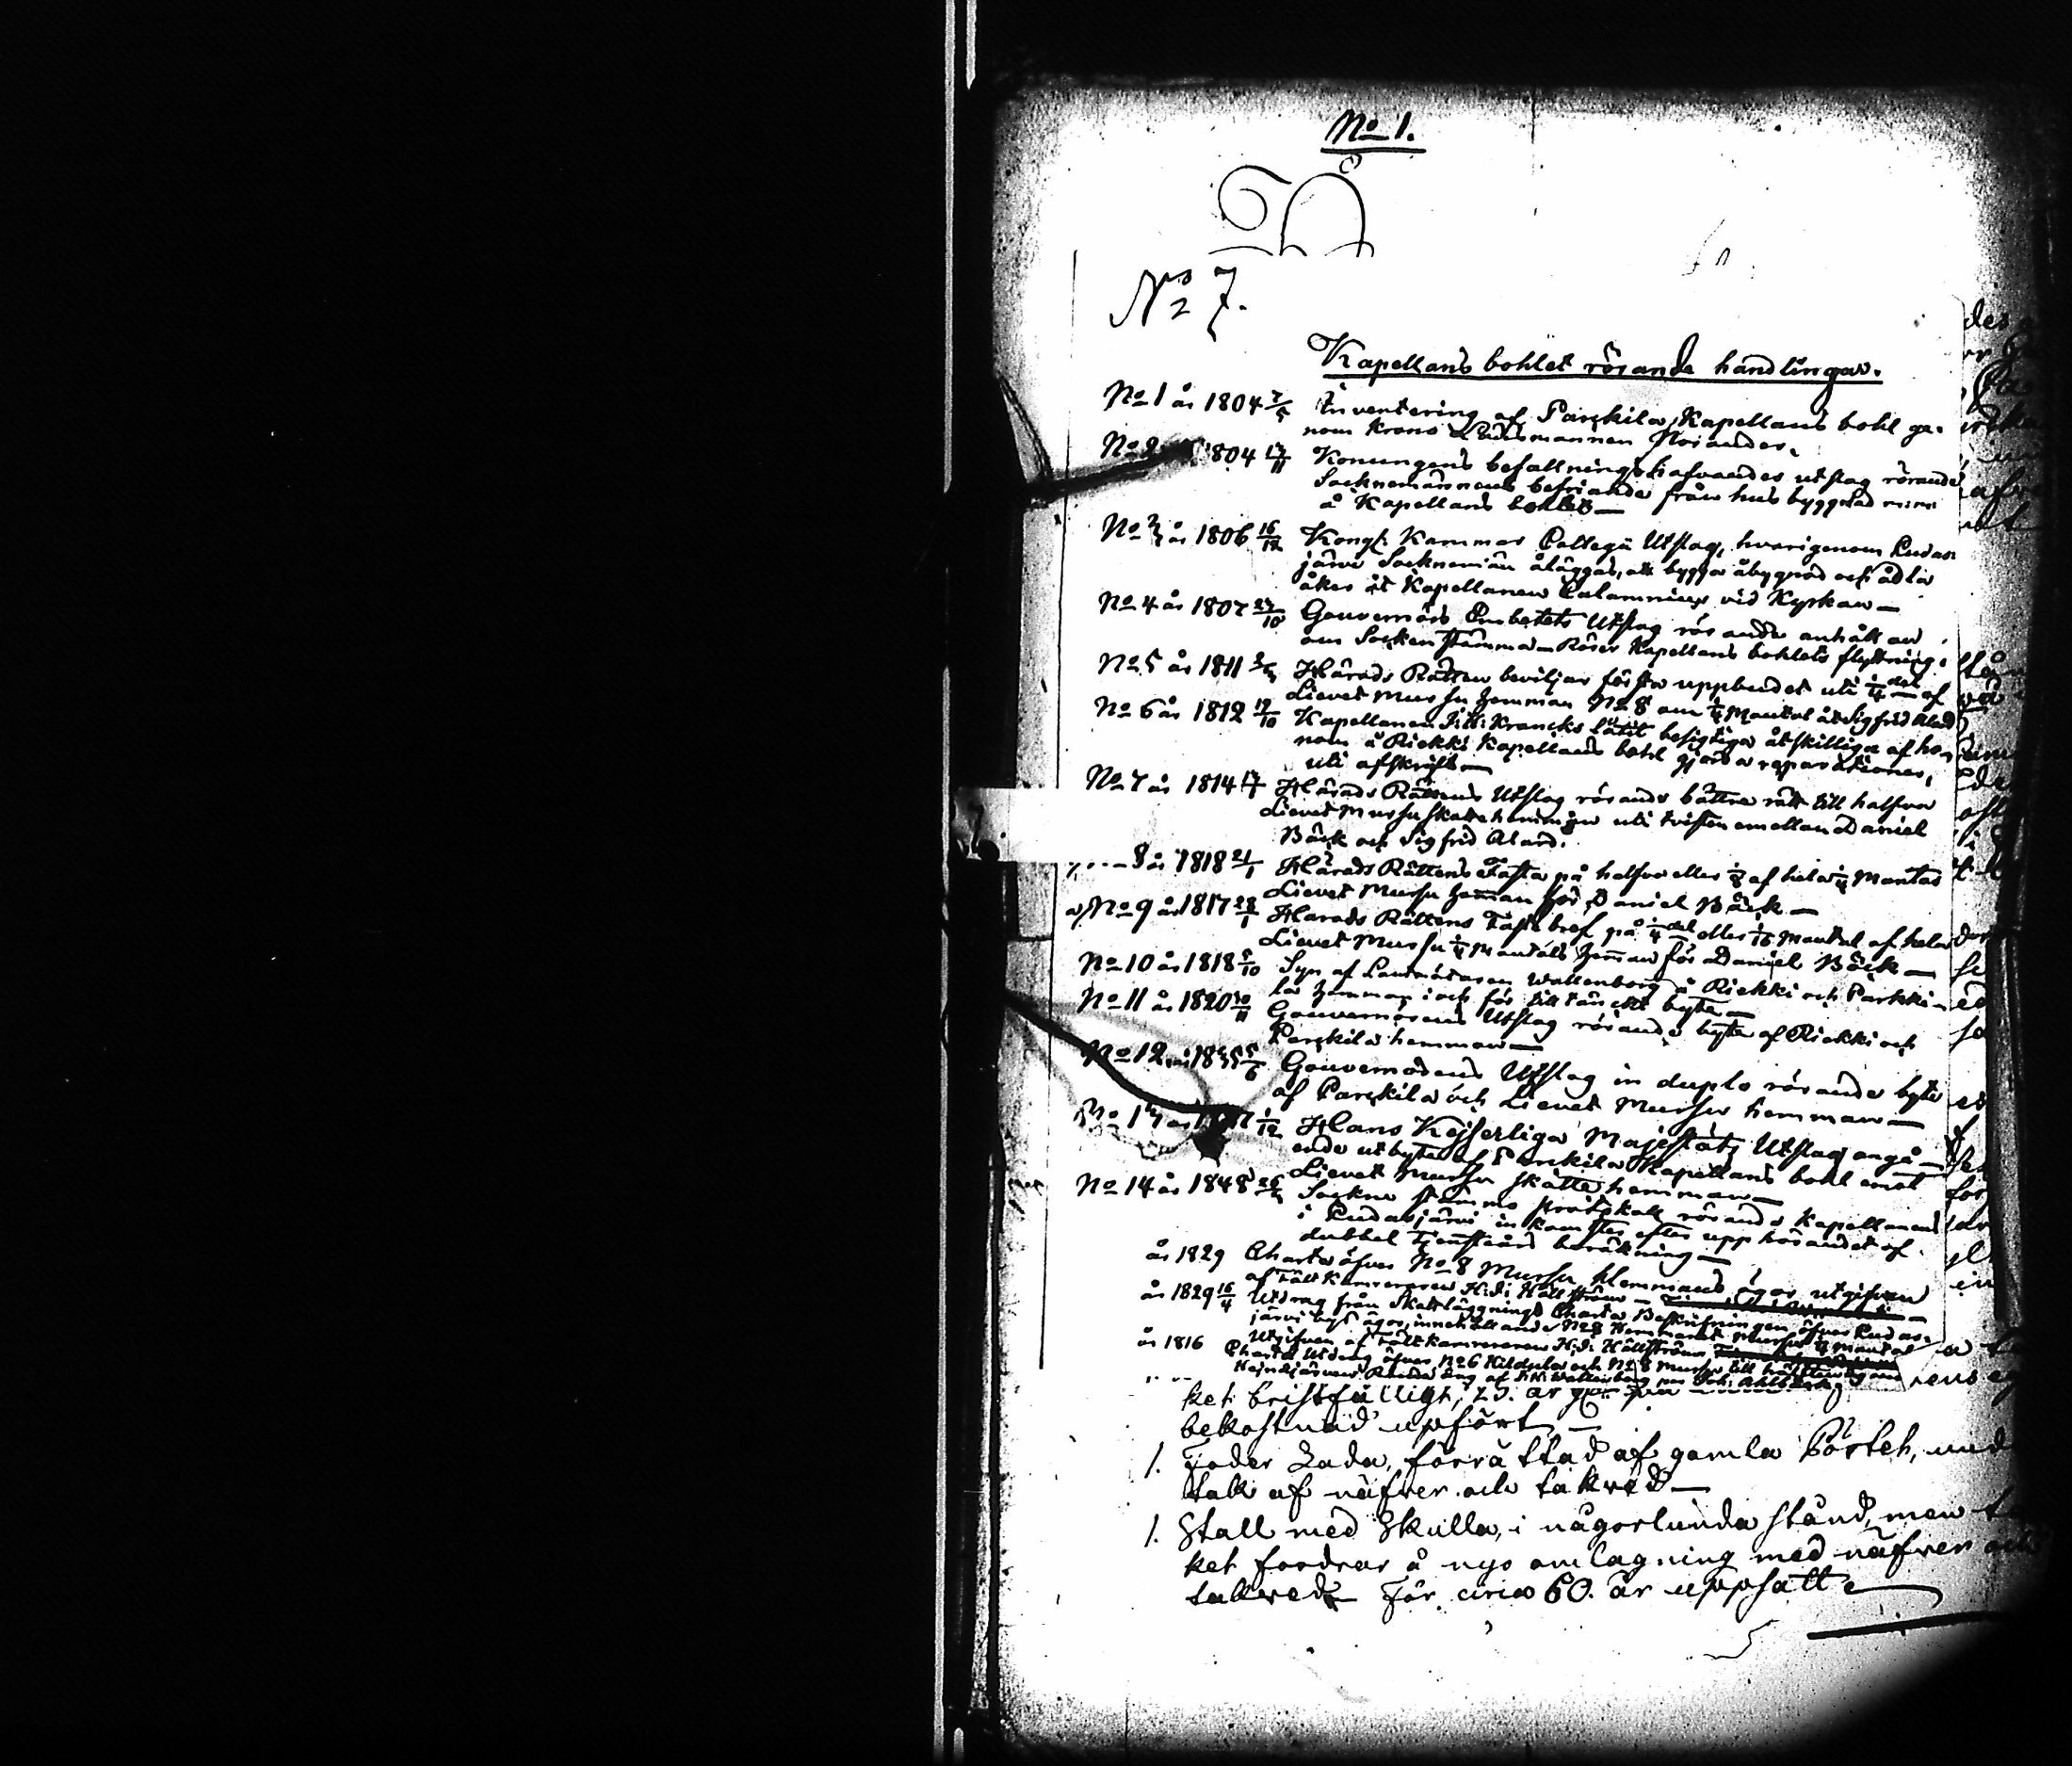 No 1.
No 7.
Kapellans bohlet rörande handlingar.
No 1 år 1804 7/5 Inventering af Parkkila Kapellans bohl ge-
nom Krono Länsmannen Florander.
No 2 1804 17/11 Konungens befallningshafvandes utslag rörande
Socknemännens befriande från hus byggnad
å Kapellans bohlet —
No 3 år 1806 16/12 Kongl: Kammar Collegii Utslag, hvarigenom Pudas-
järvi Socknemän åläggas, att bygga åbygnad och ådla
åker åt Kapellanen Calamnius vid Kyrkan —
No 4 år 1807 27/10 Gouvernörs Embetets Utslag rörande anhållan
om Sockenstämma — Rörer Kapellans bohlets flyttning.
No 5 år 1811 Härads Rätten beviljar första uppbudet uti 1/4 del af
Lievet Mursu hemman No 8 om 1/4 Mantal åt Sigfrid Alard
No 6 år 1812 19/10 Kapellanen Krancks låtit besigtiga åtskilliga af ho-
nom å Riekki Kapellans bohl gjorda reparationer,
uti afskrift —
No 7 år 1814 Härads Rättens Utslag rörande bättre rätt till halfva
Lievet Mursu skattehemman uti tvisten emellan Daniel
Bäck och Sigfrid Alard.
8 år 1818 21/1 Härads Rättens Fasta på halfva eller 1/8 af hela 1/4 Mantas
Lievet Mursu heman för Daniel Bäck —
No 9 år 1817 28/1 Härads Rättens Fastebref på 1/4 del eller 1/16 Mantal af hela
Lievet Mursu 1/4 Mantals heman för Daniel Bäck —
No 10 år 1818 5/10 Syn af Landmätaren Wallenborg å Riekki och Parkki-
la hemman i och för tilltänckt byte —
No 11 år 1820 30/11 Gouvernörens Utslag rörande byte af Riekki och
Parkkila hemman —
No 12 5/6 Gouvernörens Utslag in duplo rörande byte
af Parkkila och Lievet Mursu hemman —
No 13 1/12 Hans Kejserliga Majestäts Utslag angå-
ende utbyte af Parkkila Kapellans bohl emot
Lievet Mursu skatte hemman —
No 14 år 1848 Sockne stämmo protokoll rörande Kapellanens
i Pudasjärvi inkomster efter upphörandet af
dubbel tjensteårs beräkning —
år 1829 Charta öfver No 8 Mursu Hemmans ägor utgifven
af Fält Kamreraren H: J: Hällström —
år 1829 16/4 Utdrag från Skattläggnings Charta Beskrifningen öfver Pudas-
järvi bys ägor, innehållande No 8 Hemmanet Mursu 1/4 Mantal
Utgifven af Fältkamreraren H: J: Hällström
år 1816 Charta Utdrag öfver No 6 Hildula och No 8 Mursu till hälften
äng af Wallenborg
ket bristfälligt, 25. år
bekostnad upfört —
1. Foder Lada, förrättad af gamla Pörteh, und
tak af näfver och takved —
1. Stall med Skulla, i någorlunda stånd, men ta
ket fordrar å nyo omlagning med näfver och
takved — För circa 60. år uppsatt